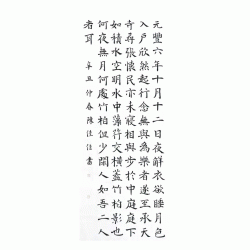 元豐六年十月十二日夜解衣欲睡月色
入戶欣然起行念無與為樂者遂至承天
寺尋張懷民亦未寢相與步於中庭庭下
如積水空明水中藻荇交橫蓋竹柏影也
何夜無月何處無竹柏但少閑人如吾二人
者耳 辛丑仲春陳佳佳書